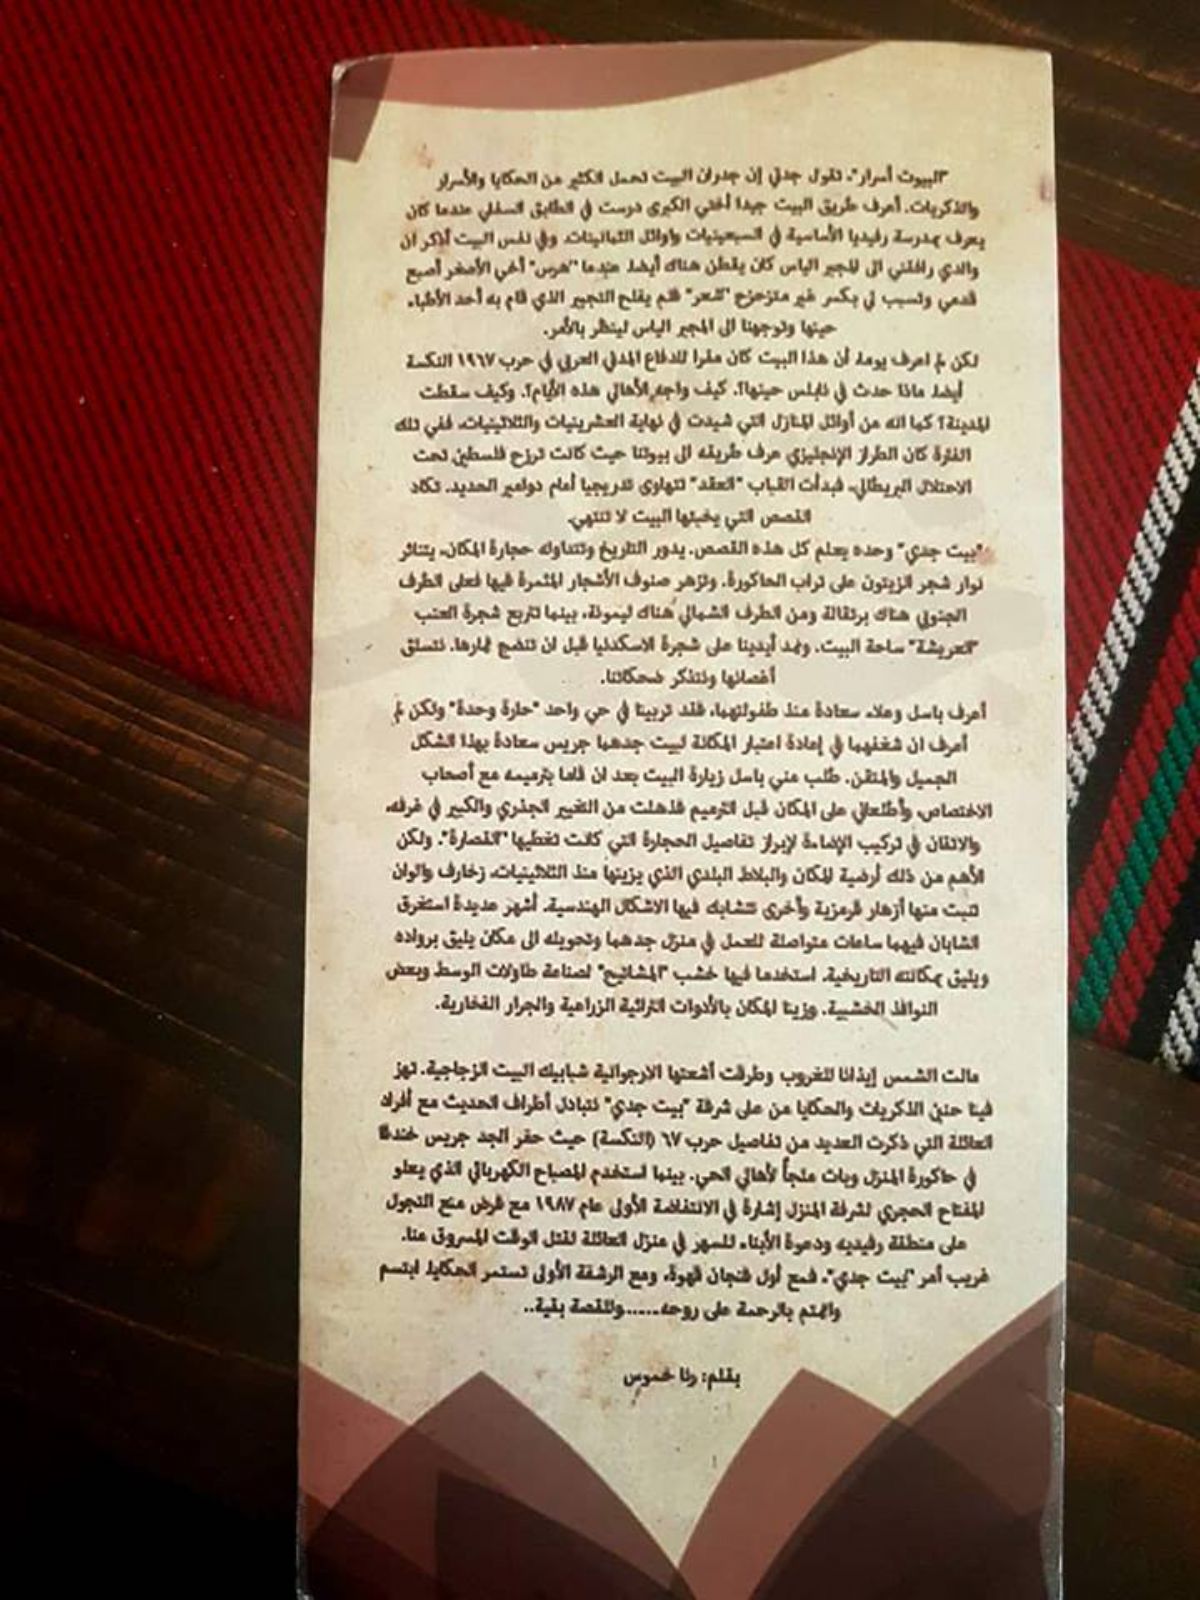 "البيوت أسرار"، تقول جدتي إن جدران البيت تحمل الكثير من الحكايا والأسرار
والذكريات. أعرف طريق البيت جيدا أختي الكبرى درست في الطابق السفلي عندما كان
يعرف بمدرسة رفيديا الأساسية في السبعينيات واوائل الثمانينات. وفي نفس البيت أذكر ان
والدي رافقني الى المجبر الياس كان يقطن هناك أيضا، عندما "هرس" أخي الأصغر أصبع
قدمي وتسبب لي بكسر غير متزحزح "شعر" فلم يفلح التجبير الذي قام به أحد الأطباء
حينها وتوجهنا الى المجبر الياس لينظر بالأمر.
لكن لم اعرف يوما، أن هذا البيت كان مقرا للدفاع المدني العربي في حرب ١٩٦٧ النكسة
أيضا، ماذا حدث في نابلس حينها؟. كيف واجه الأهالي هذه الأيام؟. وكيف سقطت
المدينة؟ كما انه من أوائل المنازل التي شيدت في نهاية العشرينيات والثلاثينيات، ففي تلك
الفترة كان الطراز الإنجليزي عرف طريقه الى بيوتنا حيث كانت ترزح فلسطين تحت
الاحتلال البريطاني، فبدأت القباب "العقد" تتهاوى تدريجيا أمام دوامير الحديد. تكاد
القصص التي يخبئها البيت لا تنتهي.
"بيت جدي" وحده يعلم كل هذه القصص. يدور التاريخ وتتداوله حجارة المكان، يتناثر
نوار شجر الزيتون على تراب الحاكورة. وتزهر صنوف الأشجار المثمرة فيها فعلى الطرف
الجنوبي هناك برتقالة ومن الطرف الشمالي هناك ليمونة، بينما تتربع شجرة العنب
"العريشة" ساحة البيت. ونمد أيدينا على شجرة الاسكدنيا قبل ان تنضج ثمارها. نتسلق
أغصانها ونتذكر ضحكاتنا.
أعرف باسل وعلاء سعادة منذ طفولتهما، فقد تربينا في حي واحد "حارة وحدة" ولكن لم
أعرف ان شغفهما في إعادة اعتبار المكانة لبيت جدهما جريس سعادة بهذا الشكل
الجميل والمتقن. طلب مني باسل زيارة البيت بعد ان قاما بترميمه مع أصحاب
الاختصاص، وأطلعاني على المكان قبل الترميم فذهلت من التغيير الجذري والكبير في غرفه،
والاتقان في تركيب الإضاءة لإبراز تفاصيل الحجارة التي كانت تغطيها "القصارة". ولكن
الأهم من ذلك أرضية المكان والبلاط البلدي الذي يزينها منذ الثلاثينيات، زخارف والوان
تنبت منها أزهار قرمزية وأخرى تتشابك فيها الاشكال الهندسية. أشهر عديدة استغرق
الشابان فيهما ساعات متواصلة للعمل في منزل جدهما وتحويله الى مكان يليق برواده
ويليق بمكانته التاريخية. استخدما فيها خشب "المشاتيح" لصناعة طاولات الوسط وبعض
النوافذ الخشبية. وزينا المكان بالأدوات التراثية الزراعية والجرار الفخارية.
مالت الشمس إيذانا للغروب وطرقت أشعتها الارجوانية شبابيك البيت الزجاجية. تهز
فينا حنين الذكريات والحكايا من على شرفة "بيت جدي" نتبادل أطراف الحديث مع أفراد
العائلة التي ذكرت العديد من تفاصيل حرب ٦٧ (النكسة) حيث حفر الجد جريس خندقا
في حاكورة المنزل وبات ملجأ لأهالي الحي. بينما استخدم المصباح الكهربائي الذي يعلو
المفتاح الحجري لشرفة المنزل إشارة في الانتفاضة الأولى عام ١٩٨٧ مع فرض منع التجول
على منطقة رفيديه ودعوة الأبناء للسهر في منزل العائلة لقتل الوقت المسروق منا.
غريب أمر "بيت جدي"، فمع أول فنجان قهوة، ومع الرشفة الأولى تستمر الحكايا. ابتسم
واتمتم بالرحمة على روحه......وللقصة بقية..
بقلم: رنا خموس